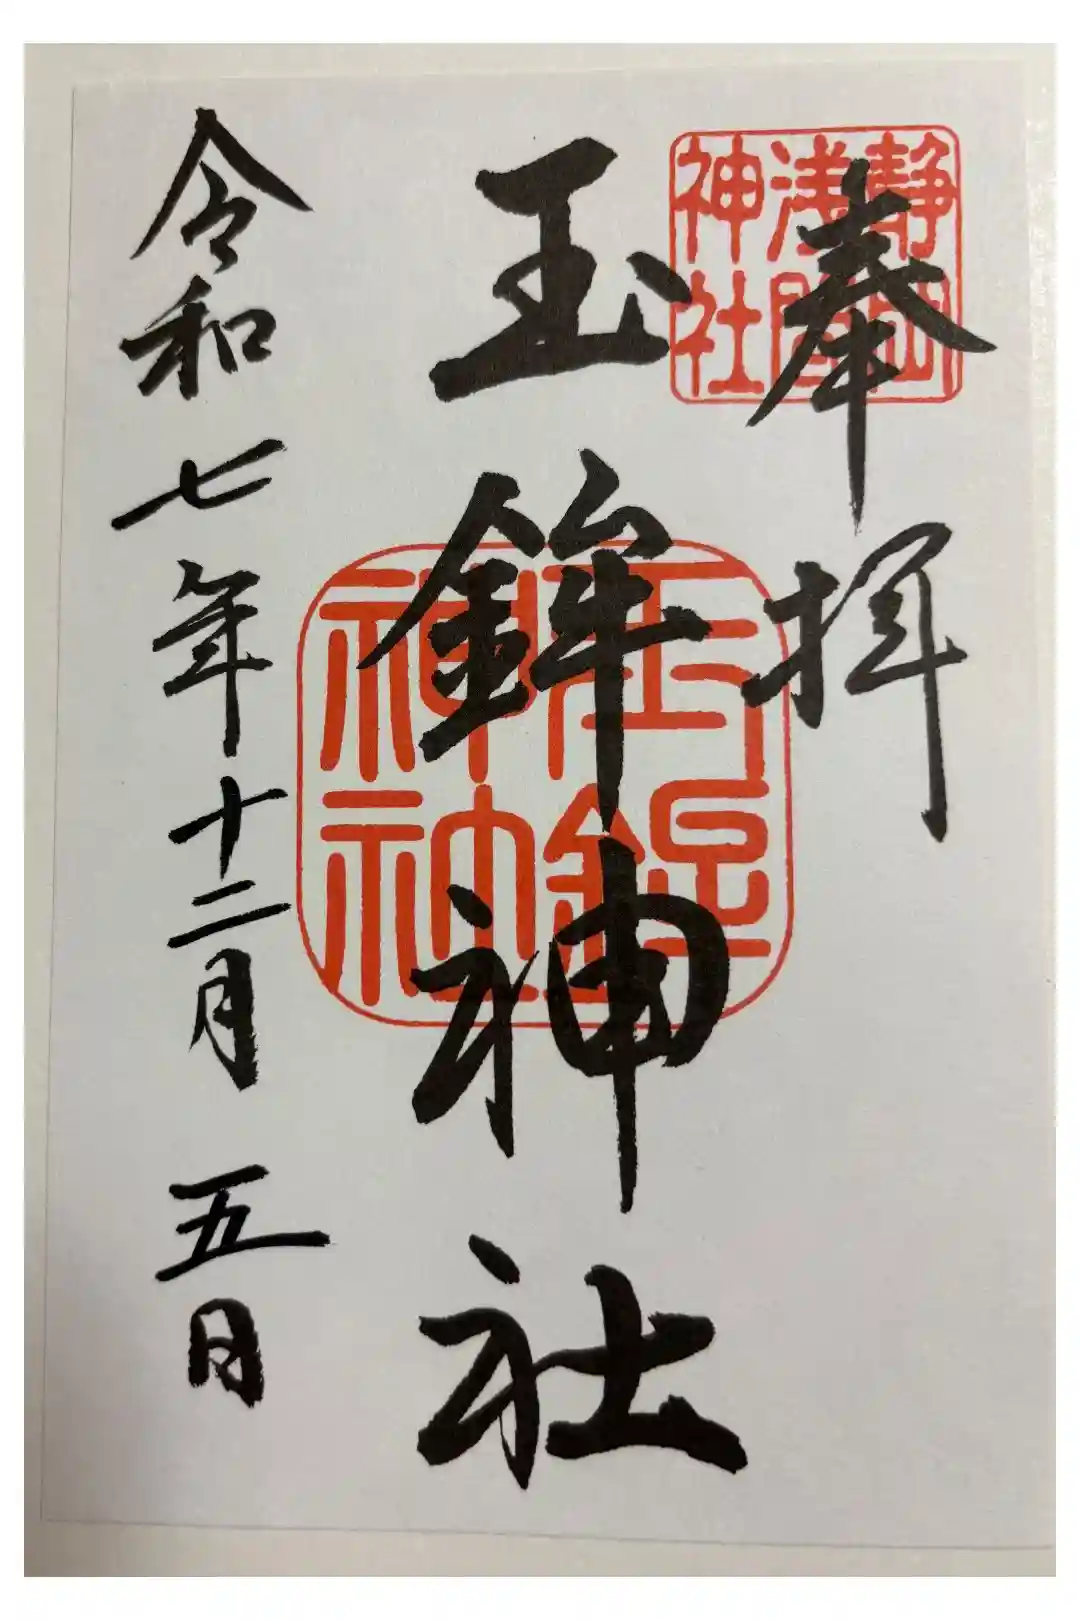 奉拝
静岡
浅間
神社
玉鉾神社
玉鉾
神社
令和七年十二月 五日